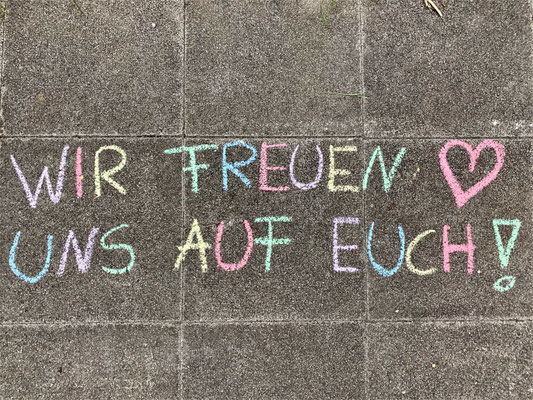 WIR FREUEN
UNS AUF EUCH!